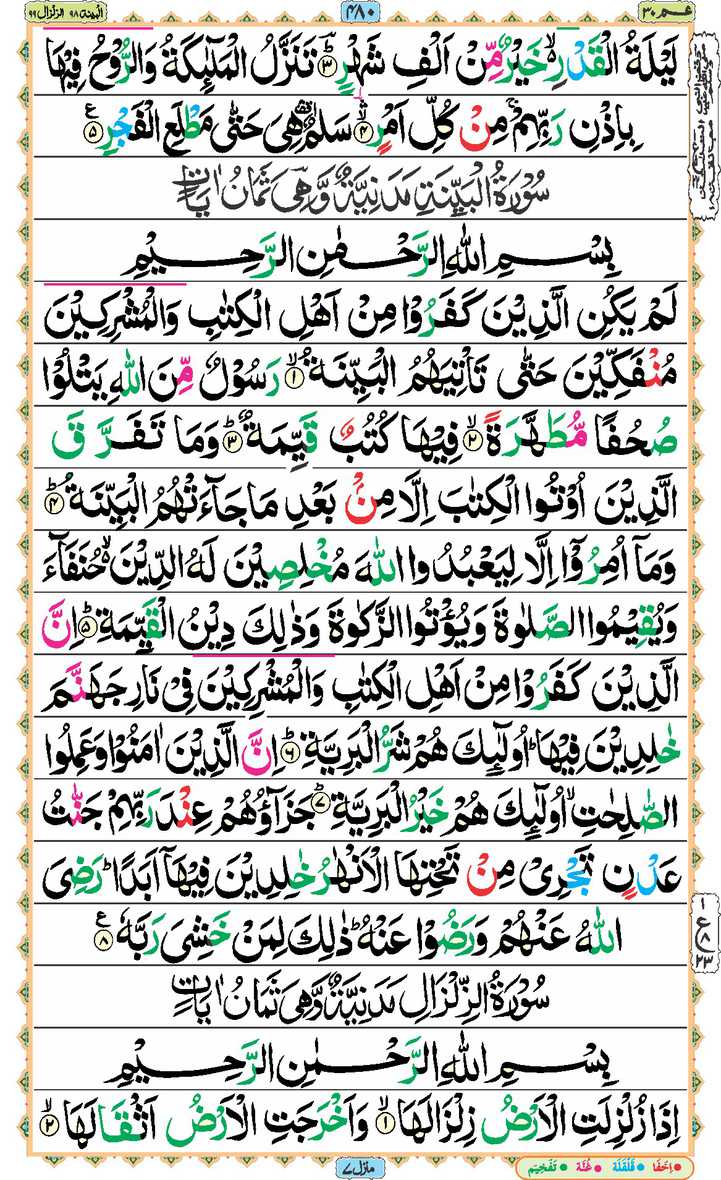 عـم ٣٠
٤٨٠
البينة ٩٨ الزلزال ٩٩
لَيْلَةُ الْقَدْرِ ۙ خَيْرٌ مِّنْ اَلْفِ شَهْرٍ ؕ ﴿۳﴾ تَنَزَّلُ الْمَلٰٓئِكَةُ وَالرُّوْحُ فِيْهَا
بِاِذْنِ رَبِّهِمْ ۚ مِنْ كُلِّ اَمْرٍ ۙ ﴿۴﴾ سَلٰمٌ ۛ هِيَ حَتّٰى مَطْلَعِ الْفَجْرِ ﴿۵﴾ ع
سُوْرَةُ الْبَيِّنَةِ مَدَنِيَّةٌ وَّهِىَ ثَمَانُ اٰيَاتٍ
بِسْمِ اللهِ الرَّحْمٰنِ الرَّحِيْمِ
لَمْ يَكُنِ الَّذِيْنَ كَفَرُوْا مِنْ اَهْلِ الْكِتٰبِ وَالْمُشْرِكِيْنَ
مُنْفَكِّيْنَ حَتّٰى تَاْتِيَهُمُ الْبَيِّنَةُ ۙ ﴿۱﴾ رَسُوْلٌ مِّنَ اللهِ يَتْلُوْا
صُحُفًا مُّطَهَّرَةً ۙ ﴿۲﴾ فِيْهَا كُتُبٌ قَيِّمَةٌ ؕ ﴿۳﴾ وَمَا تَفَرَّقَ
الَّذِيْنَ اُوْتُوا الْكِتٰبَ اِلَّا مِنْۢ بَعْدِ مَا جَآءَتْهُمُ الْبَيِّنَةُ ؕ ﴿۴﴾
وَمَآ اُمِرُوْٓا اِلَّا لِيَعْبُدُوا اللهَ مُخْلِصِيْنَ لَهُ الدِّيْنَ ۙ حُنَفَآءَ
وَيُقِيْمُوا الصَّلٰوةَ وَيُؤْتُوا الزَّكٰوةَ وَذٰلِكَ دِيْنُ الْقَيِّمَةِ ؕ ﴿۵﴾ اِنَّ
الَّذِيْنَ كَفَرُوْا مِنْ اَهْلِ الْكِتٰبِ وَالْمُشْرِكِيْنَ فِيْ نَارِ جَهَنَّمَ
خٰلِدِيْنَ فِيْهَا ؕ اُولٰٓئِكَ هُمْ شَرُّ الْبَرِيَّةِ ؕ ﴿۶﴾ اِنَّ الَّذِيْنَ اٰمَنُوْا وَعَمِلُوا
الصّٰلِحٰتِ ۙ اُولٰٓئِكَ هُمْ خَيْرُ الْبَرِيَّةِ ؕ ﴿۷﴾ جَزَآؤُهُمْ عِنْدَ رَبِّهِمْ جَنّٰتُ
عَدْنٍ تَجْرِيْ مِنْ تَحْتِهَا الْاَنْهٰرُ خٰلِدِيْنَ فِيْهَآ اَبَدًا ؕ رَضِيَ
اللهُ عَنْهُمْ وَرَضُوْا عَنْهُ ؕ ذٰلِكَ لِمَنْ خَشِيَ رَبَّهٗ ﴿۸﴾ ع
١ ع ٨ ٢٣
سُوْرَةُ الزِّلْزَالِ مَدَنِيَّةٌ وَّهِىَ ثَمَانُ اٰيَاتٍ
بِسْمِ اللهِ الرَّحْمٰنِ الرَّحِيْمِ
اِذَا زُلْزِلَتِ الْاَرْضُ زِلْزَالَهَا ۙ ﴿۱﴾ وَاَخْرَجَتِ الْاَرْضُ اَثْقَالَهَا ۙ ﴿۲﴾
منزل ٧
اِخْفَا قَلْقَلَة غُنَّة تَفْخِيْم